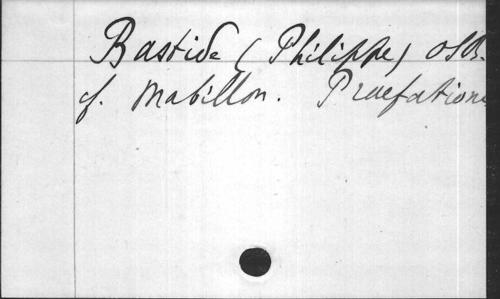 Bastide (Philippe) OSB.
cf. Mabillon. Praefation